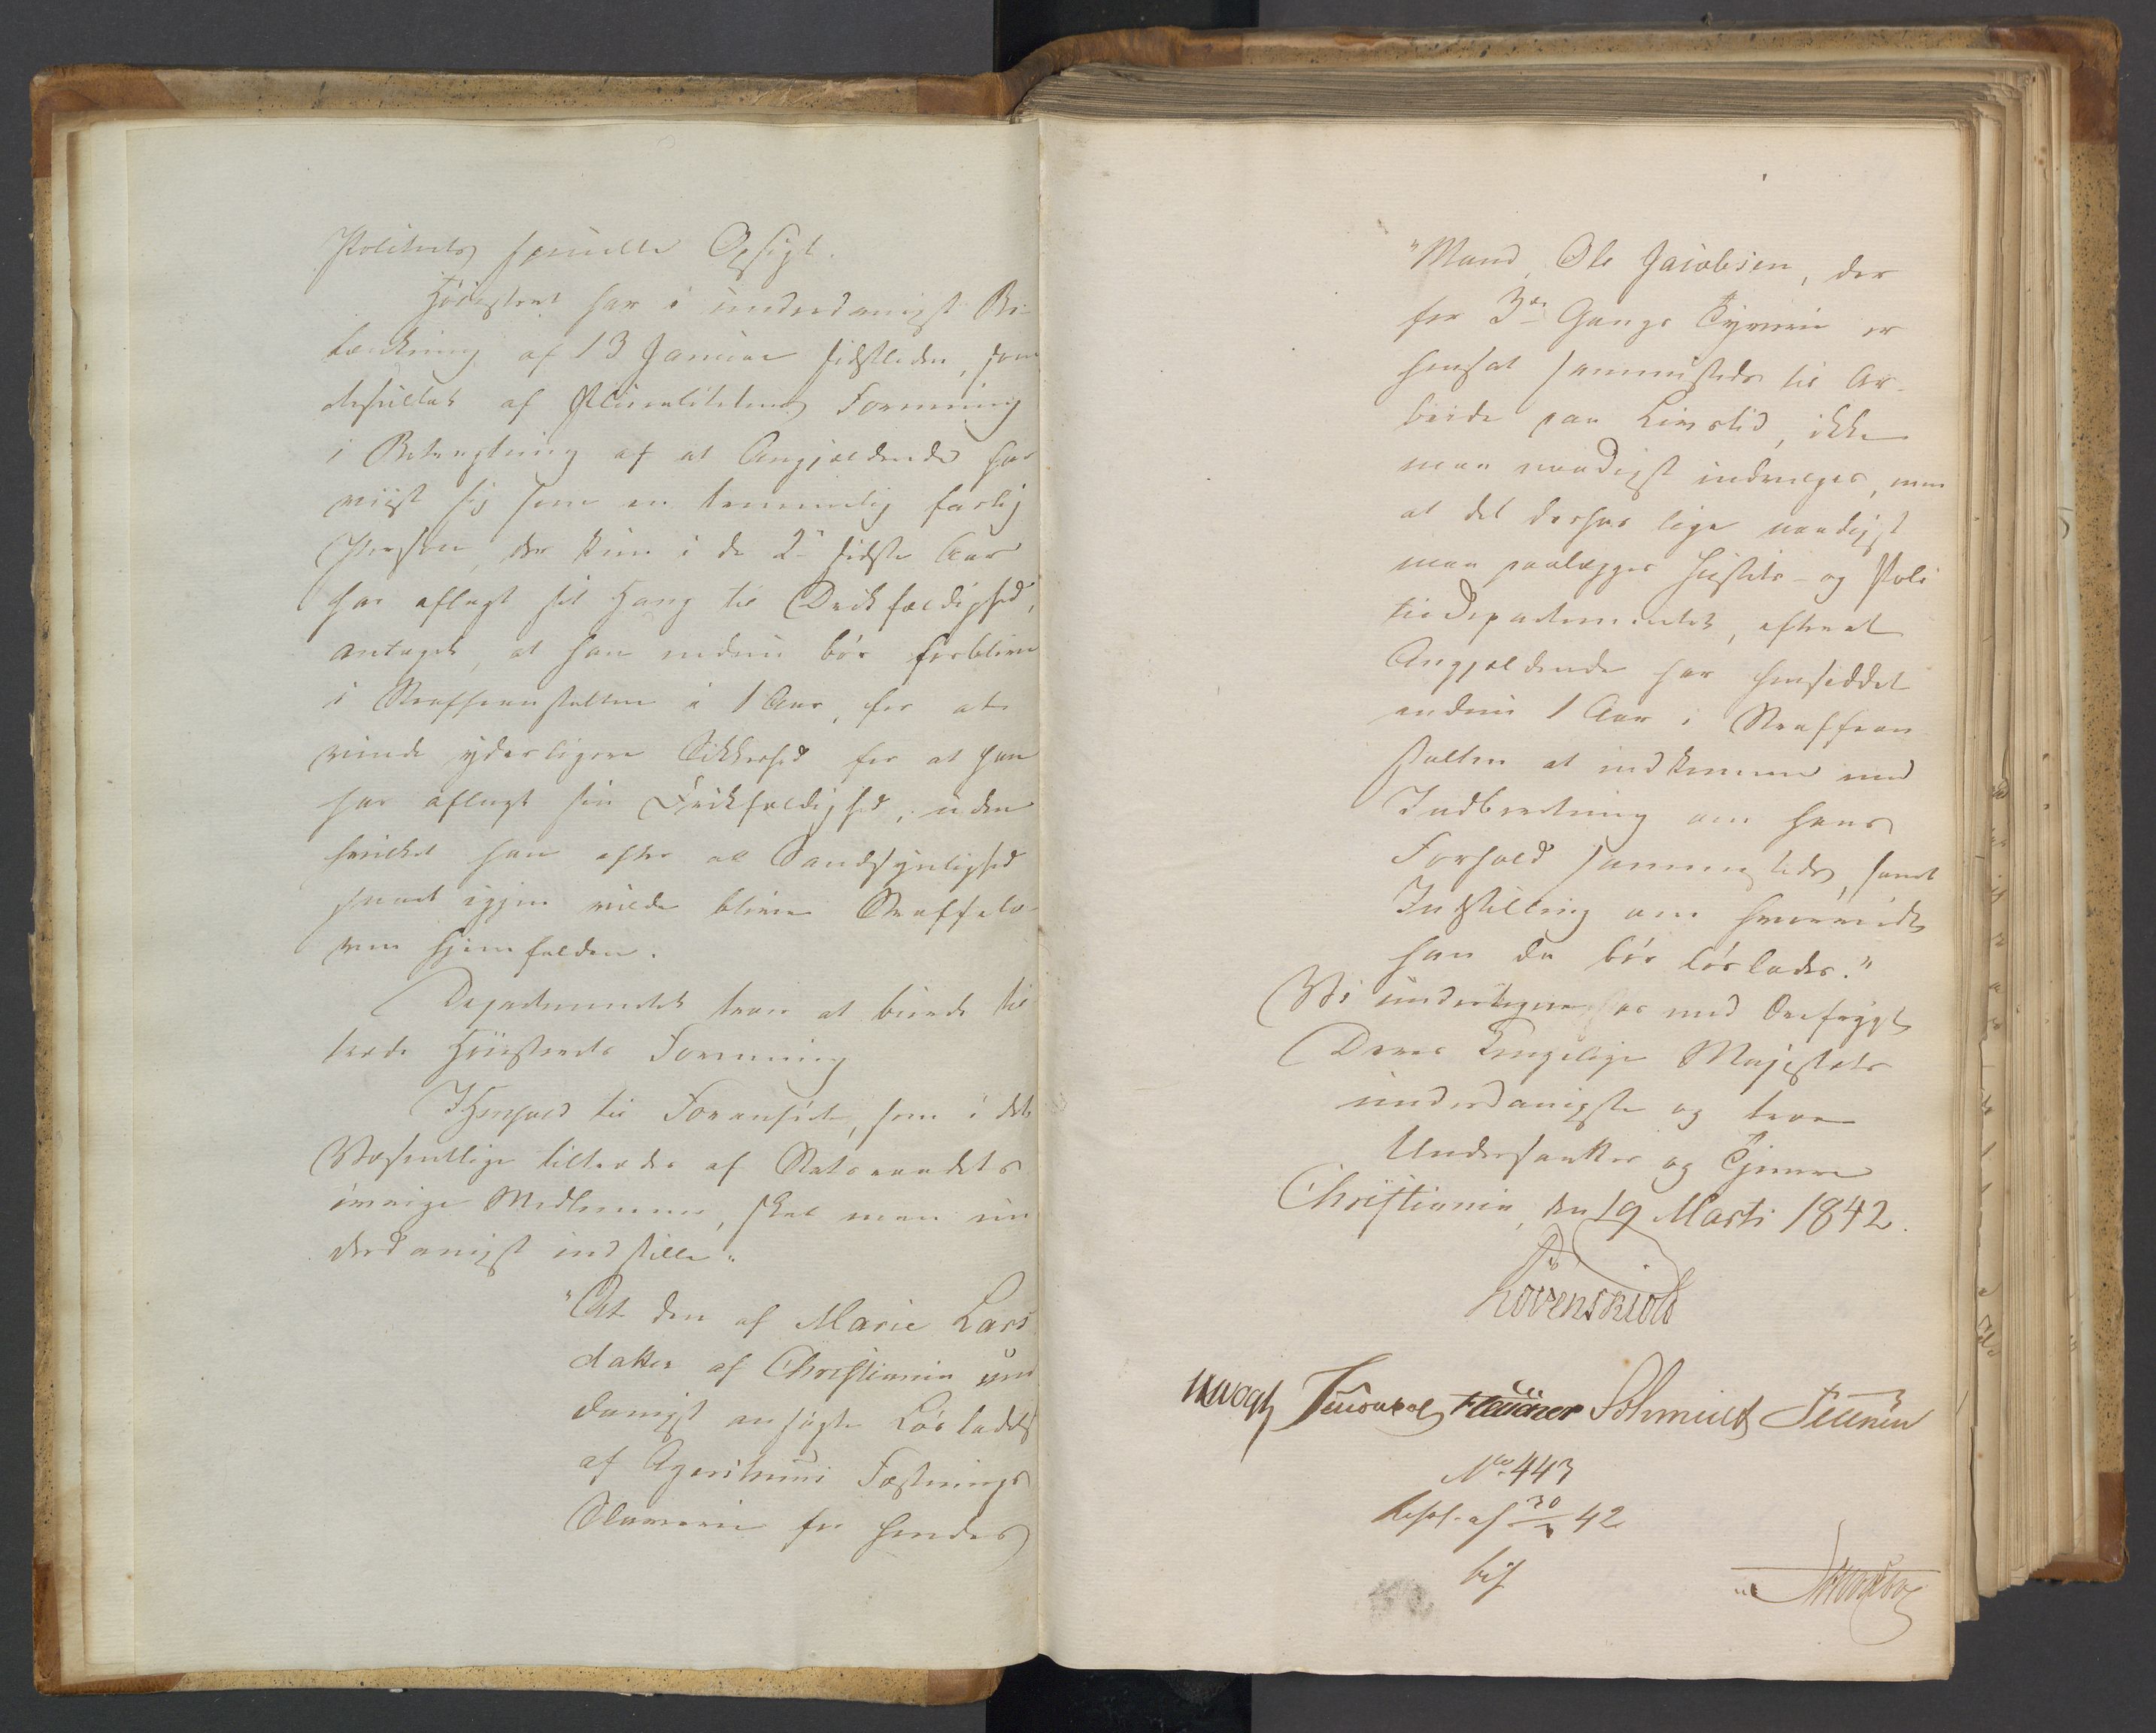 Politiets specielle Opsigt.
Høiesteret har i underdanigst Be-
tænkning af 13 Januar sidstleden, som
Resultat af Pluralitetens Formening
i Betragtning af at Angjældende har
viist sig som en temmelig farlig
Person, der kun i de 2 sidste Aar
har aflagt sit Hang til Drikfældighed,
antaget, at han endnu bør forblive
i Straffeanstalten i 1 Aar, for at
vinde yderligere Sikkerhed for at han
har aflagt sin Drikfældighed, uden
hvilket han efter al Sandsynlighed
snart igjen vilde blive Straffelo-
ven hjemfalden.
Departementet troer at burde til-
træde Høiesterets Formening
I Henhold til Foranførte, som i det
Væsentlige tiltrædes af Statsraadets
øvrige Medlemmer, skal man un
derdanigst indstille:
"At den af Marie Lars
datter af Christiania un
danigst ansøgte Løsladelse
af Agershuus Fæstnings
Slaverie for hendes
"Mand, Ole Jacobsen, der
for 3die Gangs Tyverie er
hensat sammesteds til Ar-
beide paa Livstid, ikke
maa naadigst indvilges, men
at det derhos lige naadigst
maa paalægges Justits- og Poli
tiedepartementet, efterat
Angjældende har hensiddet
endnu 1 Aar i Straffean
stalten at indkomme med
Indberetning om hans
Forhold sammesteds, samt
Indstilling om hvorvidt
han da bør løslades."
Vi undertegne os med Ærefrygt
Deres Kongelige Majestæts
underdanigste og troe
Undersaatter og Tjenere
Christiania, den 19 Marts 1842.
Løvenskiold
Vogt Flauner Schmidt
No 443
Resol. af 30/3 42
bif